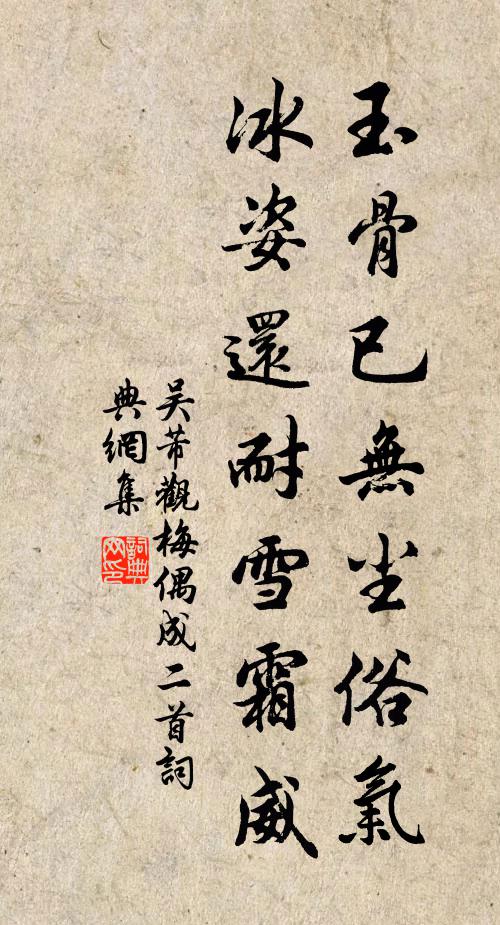 玉骨已無尘俗氣
冰姿還耐雪霜威
吴芾觀梅偶成二首詞
典網集
詞典网印